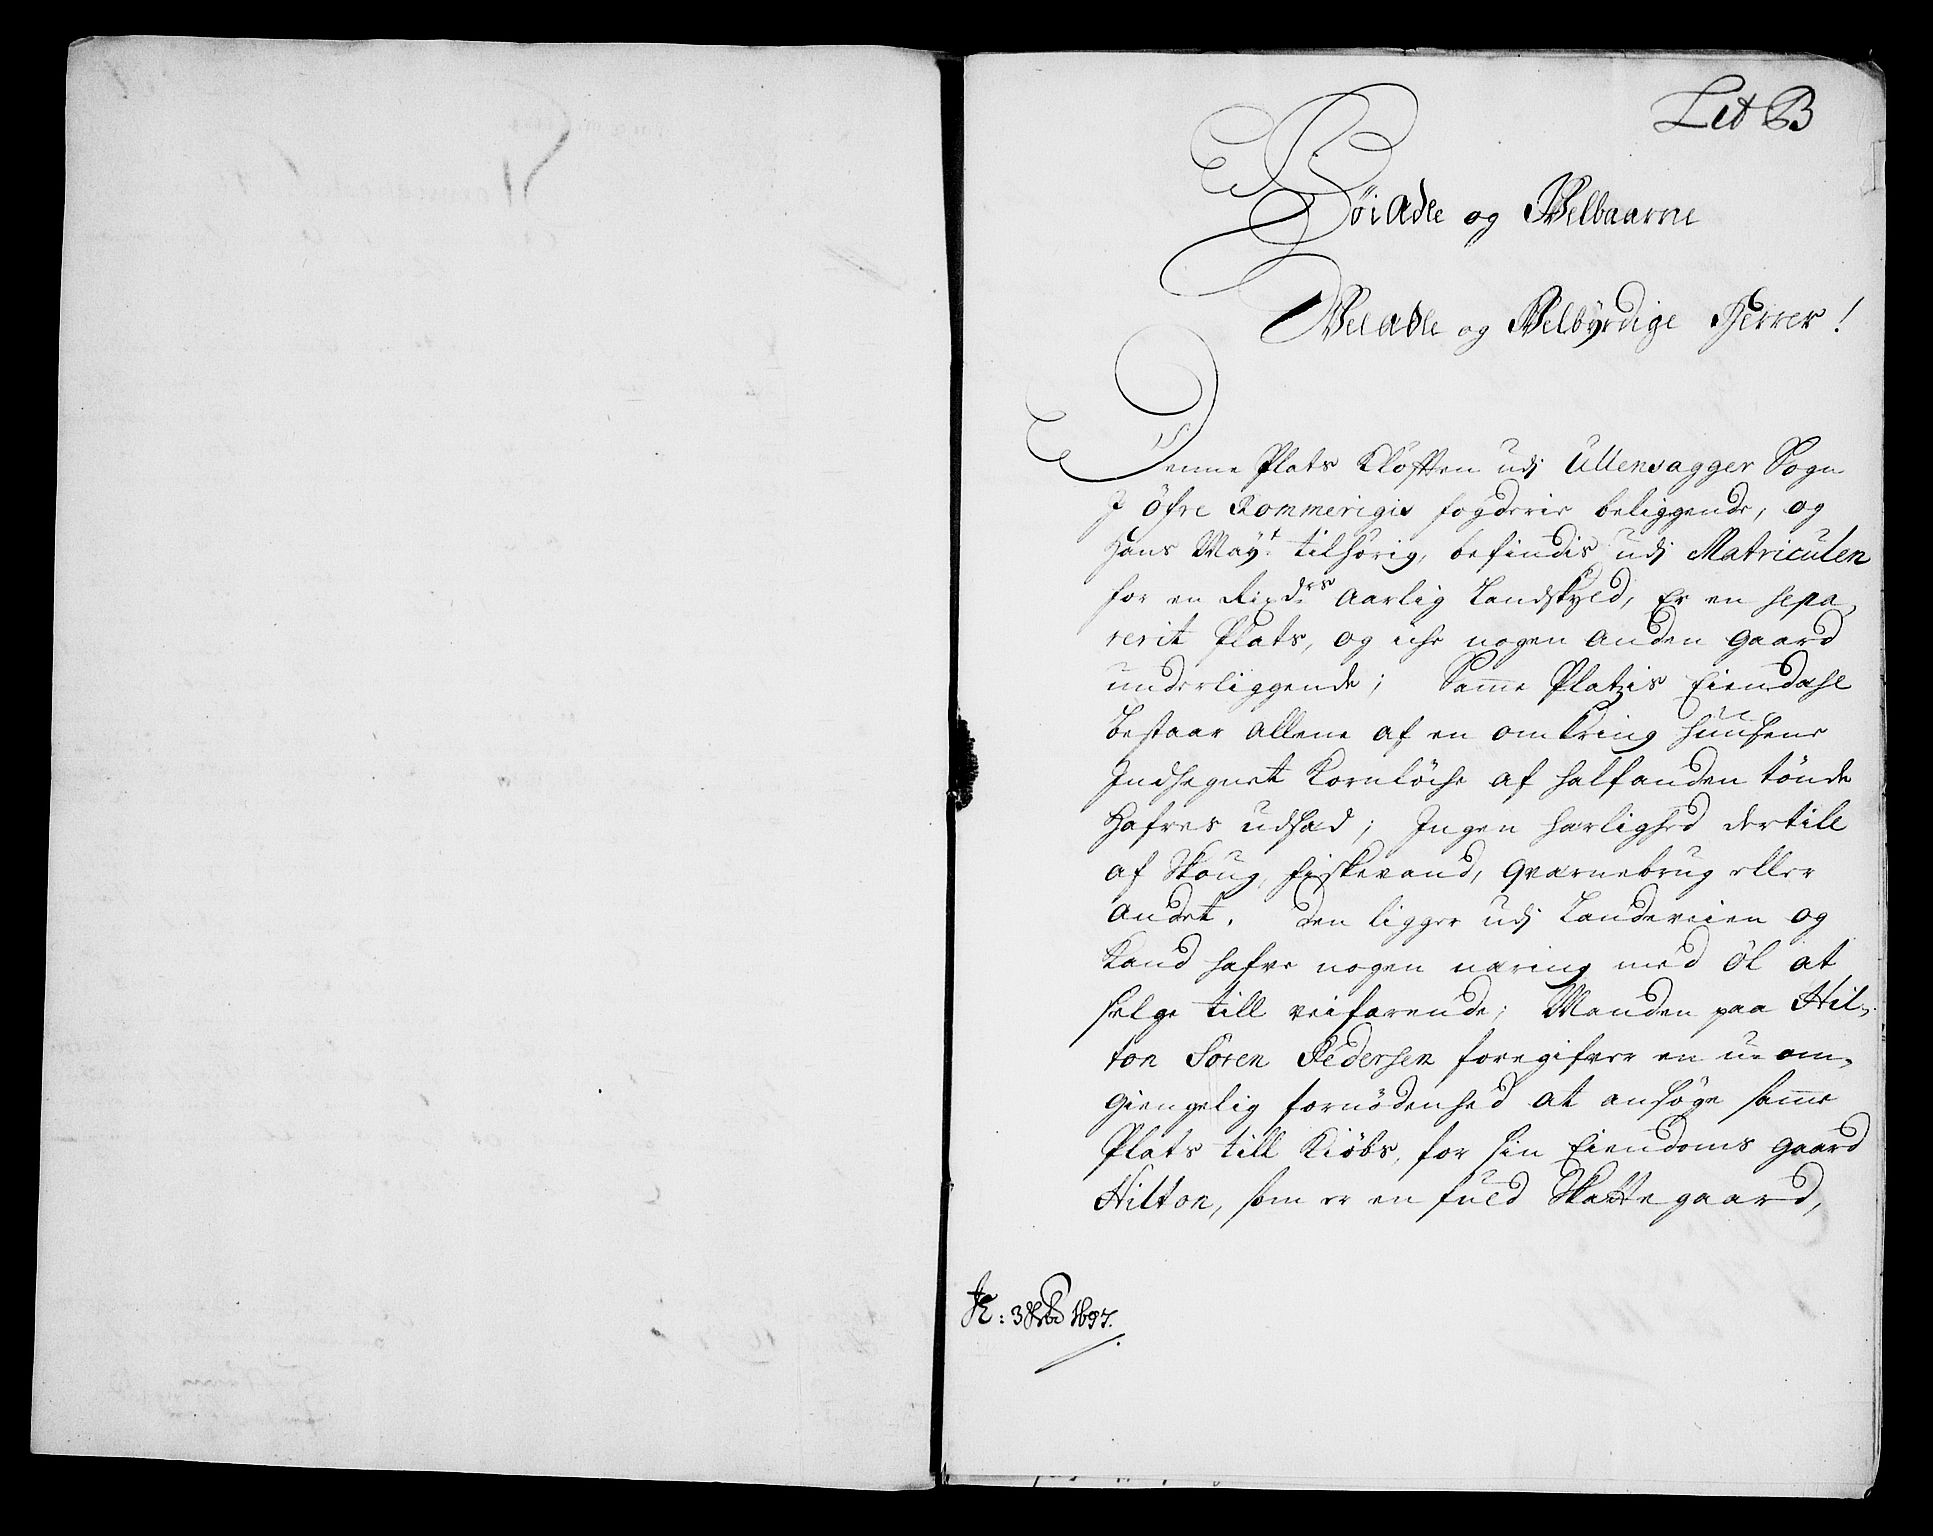 Lit B
HöiAdle og Welbaarne
WelAdle og Welbÿrdige Herrer!
Denne Plats Kløfften udj Ullensagger Sogn
J Öfre Rommerigis fogderie beliggende, og
Hans Mayt. tilhörig, befindis udj Matriculen
for en Rixdrs Aarlig Landskyld, Er en sepa,
rerit Plats, og iche nogen anden gaard
underliggende; Samme Platzis Eiendehl
bestaar allene af en omkring huusene
Indhegnet Kornløche af halfanden tönde
Hafres udsæd; Ingen herlighed dertill
af Skoug, fiskevand, qvarnebrug eller
andet. den ligger udj Landeveien og
kand hafve nogen næring med Öl at
selge till veifarende; Manden paa Hil-
ton Sören Pedersen foregifver en u-om-
giengelig fornödenhed at ansöge samme
Plats till Kiöbs, for sin Eiendoms gaard
Hilton, som er en fuld Skattegaard,
1697.